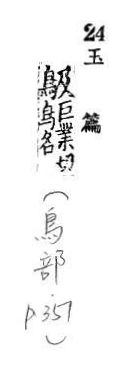 24
玉篇
巨業切
鳥名
(鳥部
p.357)